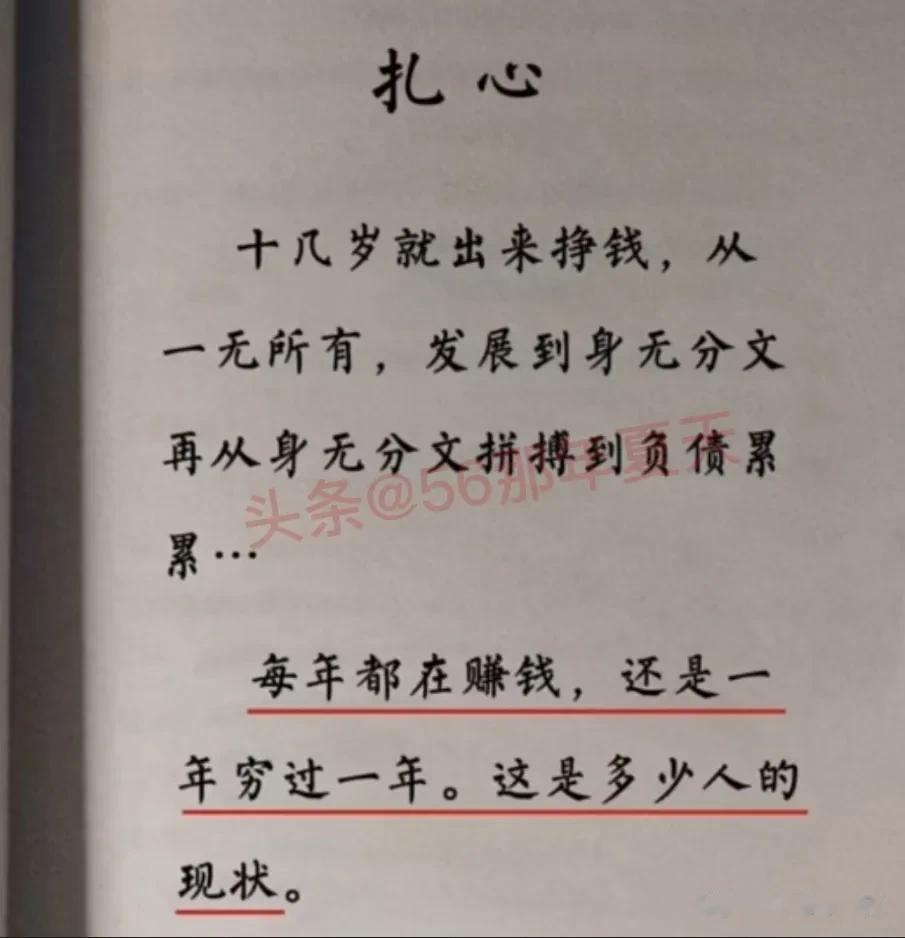 扎心
十几岁就出来挣钱，从
一无所有，发展到身无分文
再从身无分文拼搏到负债累
头条@56那年夏天
累…
每年都在赚钱，还是一
年穷过一年。这是多少人的
现状。